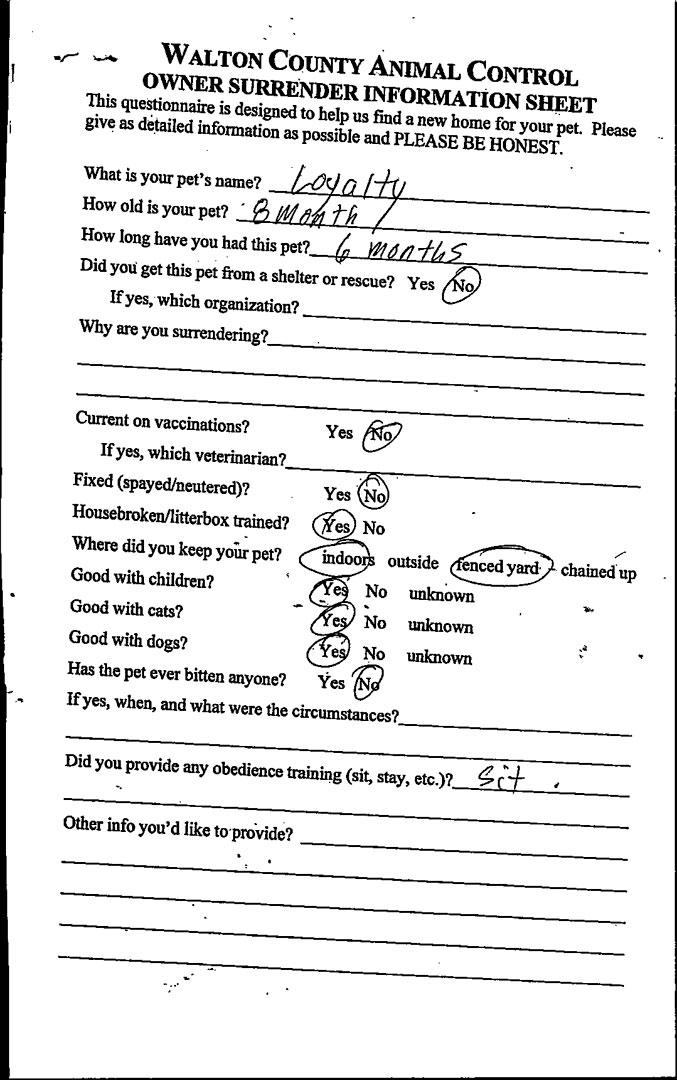 WALTON COUNTY ANIMAL CONTROL
OWNER SURRENDER INFORMATION SHEET
This questionnaire is designed to help us find a new home for your pet. Please
give as detailed information as possible and PLEASE BE HONEST.
What is your pet's name? Loyalty
How old is your pet? 8 month
How long have you had this pet? 6 months
Did you get this pet from a shelter or rescue? Yes No
If yes, which organization?
Why are you surrendering?
Current on vaccinations? Yes No
If yes, which veterinarian?
Fixed (spayed/neutered)? Yes No
Housebroken/litterbox trained? Yes No
Where did you keep your pet? indoors outside fenced yard chained up
Good with children? Yes No unknown
Good with cats? Yes No unknown
Good with dogs? Yes No unknown
Has the pet ever bitten anyone? Yes No
If yes, when, and what were the circumstances?
Did you provide any obedience training (sit, stay, etc.)? Sit
Other info you'd like to provide?